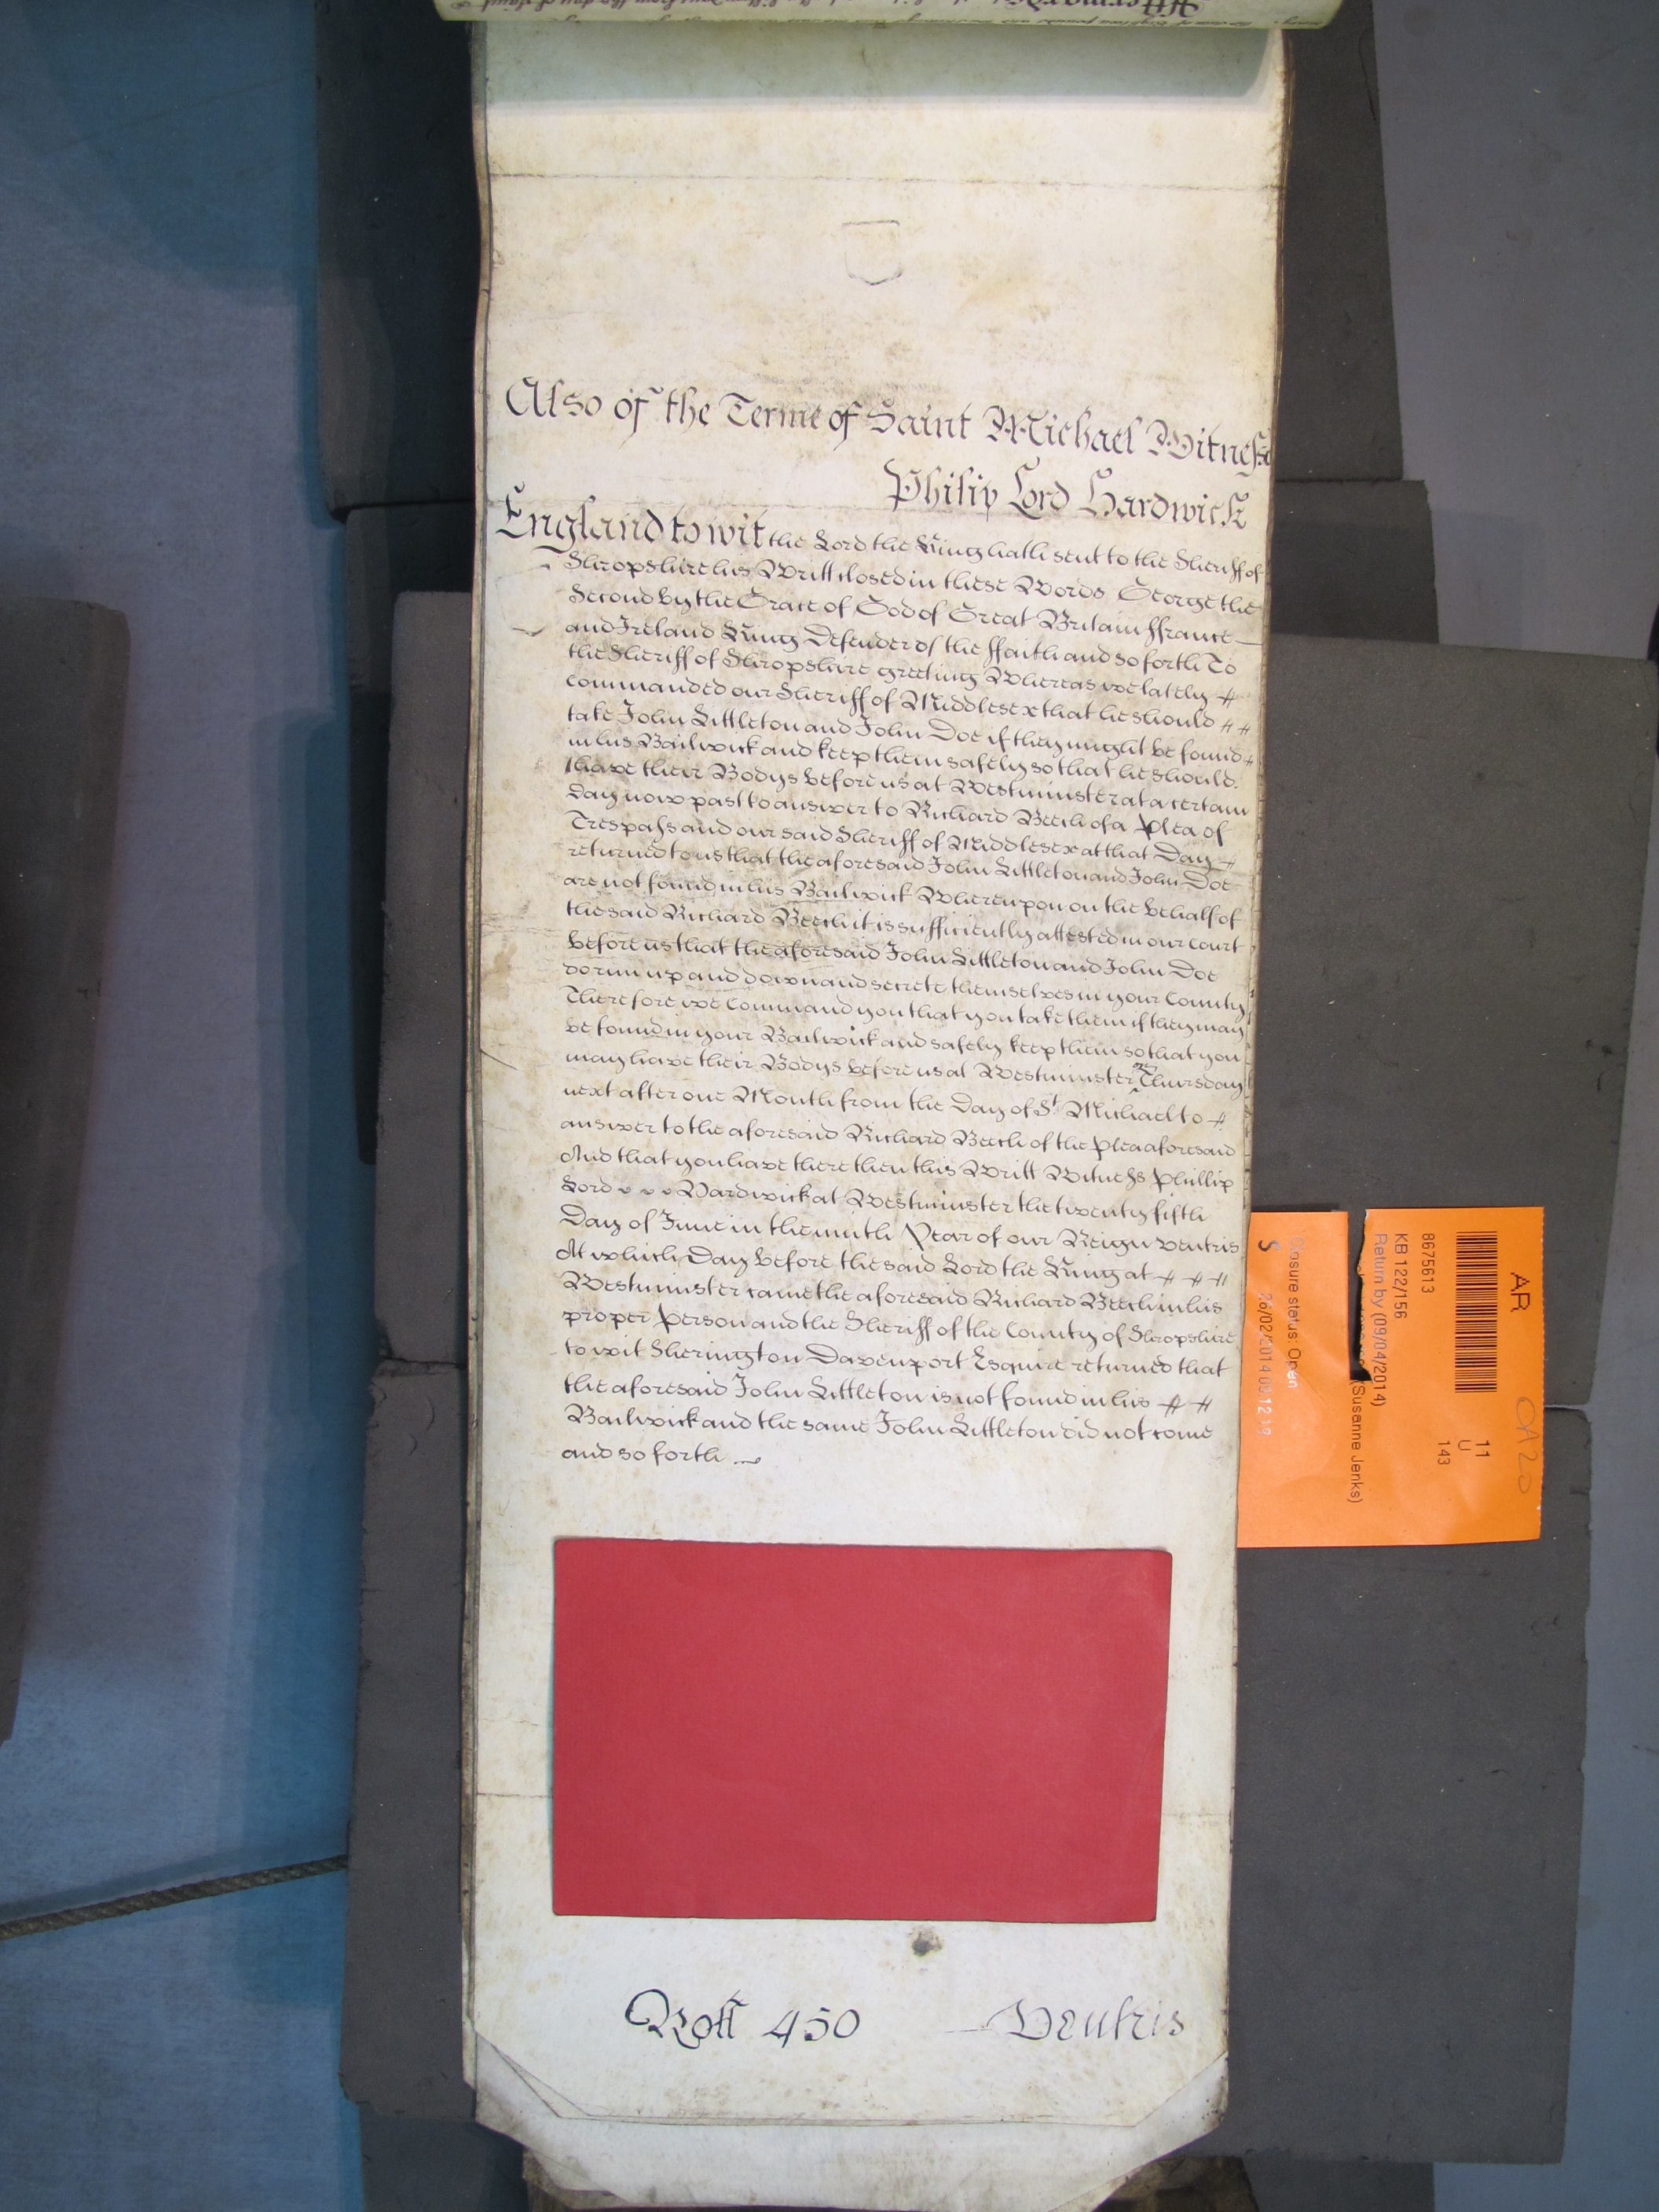 Also of the Terme of Saint Michael Witnesse
Philip Lord Hardwick
England to wit the Lord the King hath sent to the Sheriff of
Shropshire his Writt closed in these Words George the
Second by the Grace of God of Great Britain ffrance
and Ireland King Defender of the ffaith and so forth To
the Sheriff of Shropshire greeting Whereas we lately
commanded our Sheriff of Middlesex that he should
take John Littleton and John Doe if they might be found
in his Bailwick and keep them safely so that he should
have their Bodys before us at Westminster at a certain
Day now past to answer to Richard Beech of a plea of
Trespass and our said Sheriff of Middlesex at that Day
returned to us that the aforesaid John Littleton and John Doe
are not found in his Bailwick Whereupon on the behalf of
the said Richard Beech it is sufficiently attested in our Court
before us that the aforesaid John Littleton and John Doe
do run up and down and secrete themselves in your County
Therefore we Command you that you take them if they may
be found in your Bailwick and safely keep them so that you
may have their Bodys before us at Westminster on Thursday
next after one Month from the Day of St Michael to
answer to the aforesaid Richard Beech of the plea aforesaid
And that you have there then this Writt Witness Phillip
Lord Hardwick at Westminster the twenty fifth
Day of June in the ninth Year of our Reign Ventris
At which Day before the said Lord the King at
Westminster came the aforesaid Richard Beech in his
proper person and the Sheriff of the County of Shropshire
to wit Sherington Davenport Esquire returned that
the aforesaid John Littleton is not found in his
Bailwick and the same John Littleton did not come
and so forth
Roll 450 Ventris
AR
8675613
KB 122/156
Return by (09/04/2014)
(Susanne Jenks)
Closure status: Open
S 26/02/2014 09:12:19
11
U
143